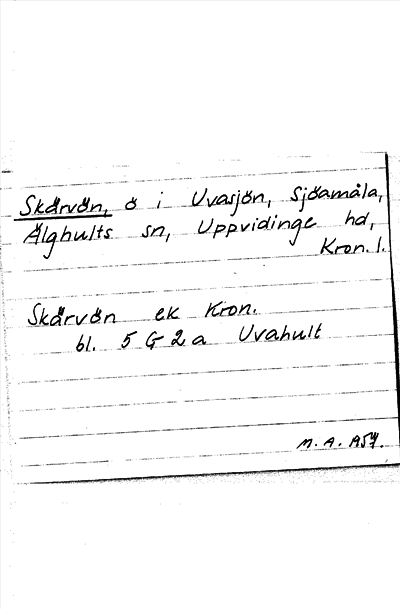 Skärvön, ö i Uvasjön, Sjöamåla,
Älghults sn, Uppvidinge hd,
Kron. l.
Skärvön ek Kron.
bl. 5 G 2 a Uvahult
M. A. 1957.